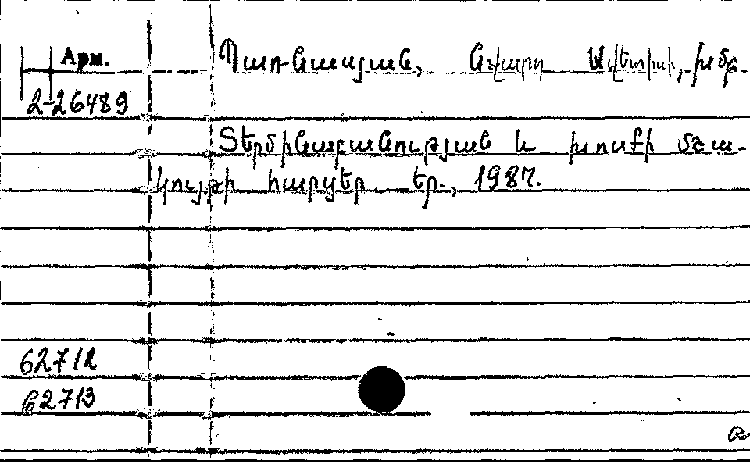 Арм.
2-26489
Պառնասյան, Նվարդ Ավետիսի, խմբ.
Տերմինաբանության և խոսքի մշա-
կույթի հարցեր. Եր., 1987.
62712
62713